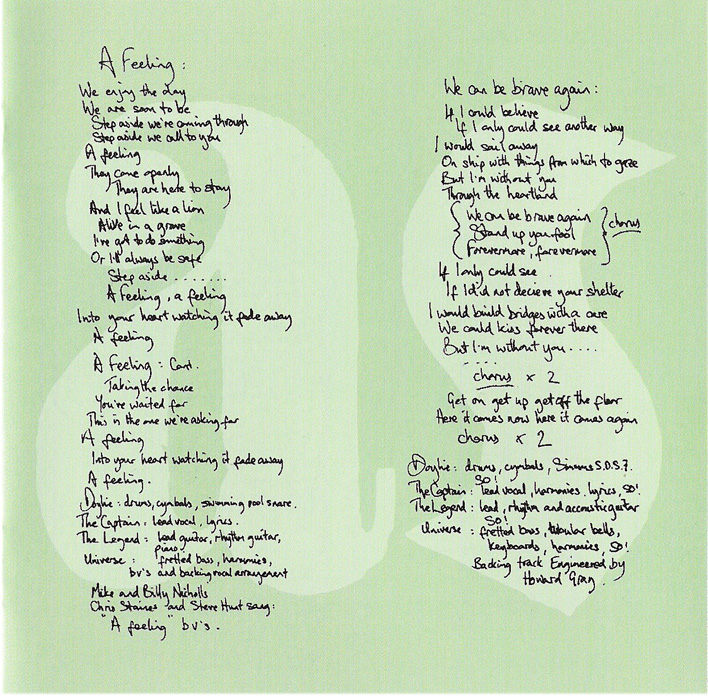 A Feeling :
We enjoy the day
We are soon to be
Step aside we're coming through
Step aside we call to you
A feeling
They come openly
They are here to stay
And I feel like a lion
Alive in a grave
I've got to do something
Or I'll always be safe
Step aside ........
A Feeling, a feeling
Into your heart watching it fade away
A feeling
A Feeling : Cont.
Taking the chance
You've waited for
This is the one we're asking for
A feeling
Into your heart watching it fade away
A feeling.
Doyhie : drums, cymbals, swimming pool snare.
The Captain : lead vocal, lyrics.
The Legend : lead guitar, rhythm guitar,
piano
Universe : fretted bass, harmonies,
bv's and backing vocal arrangement
Mike and Billy Nicholls
Chris Staines and Steve Hunt sang:
"A feeling" bv's.
We can be brave again :
If I could believe
If I only could see another way
I would sail away
On ship with things from which to gaze
But I'm without you
Through the heartland
We can be brave again
Stand up you fool
Forevermore, forevermore
chorus
If I only could see
If I did not decieve your shelter
I would build bridges with a care
We could kiss forever there
But I'm without you ....
....
chorus x 2
Get on get up get off the floor
Here it comes now here it comes again
chorus x 2
Doyhie : drums, cymbals, Simmons S.D.S.7.
SO!
The Captain : lead vocal, harmonies, lyrics, SO!
The Legend : lead, rhythm and acoustic guitar
SO!
Universe : fretted bass, tubular bells,
keyboards, harmonies, SO!
Backing track Engineered by
Howard Gray.